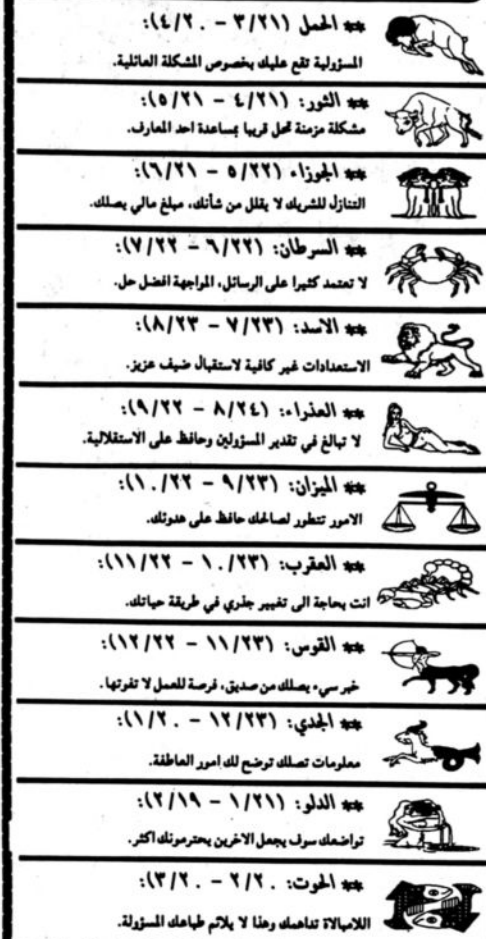 ** الحمل (٣/٢١ - ٤/٢٠):
المسؤولية تقع عليك بخصوص المشكلة العائلية.
** الثور: (٤/٢١ - ٥/٢١):
مشكلة مزمنة تحل قريبا بمساعدة احد المعارف.
** الجوزاء (٥/٢٢ - ٦/٢١):
التنازل للشريك لا يقلل من شأنك، مبلغ مالي يصلك.
** السرطان: (٦/٢٢ - ٧/٢٢):
لا تعتمد كثيرا على الرسائل، المواجهة افضل حل.
** الاسد: (٧/٢٣ - ٨/٢٣):
الاستعدادات غير كافية لاستقبال ضيف عزيز.
** العذراء: (٨/٢٤ - ٩/٢٢):
لا تبالغ في تقدير المسؤولين وحافظ على الاستقلالية.
** الميزان: (٩/٢٣ - ١٠/٢٢):
الامور تتطور لصالحك حافظ على هدوئك.
** العقرب: (١٠/٢٣ - ١١/٢٢):
انت بحاجة الى تغيير جذري في طريقة حياتك.
** القوس: (١١/٢٣ - ١٢/٢٢):
خبر سيء يصلك من صديق، فرصة للعمل لا تفوتها.
** الجدي: (١٢/٢٣ - ١/٢٠):
معلومات تصلك توضح لك امور العاطفة.
** الدلو: (١/٢١ - ٢/١٩):
تواضعك سوف يجعل الاخرين يحترمونك اكثر.
** الحوت: ٢/٢٠ - ٣/٢٠):
اللامبالاة تداهمك وهذا لا يلائم طباعك المسؤولة.